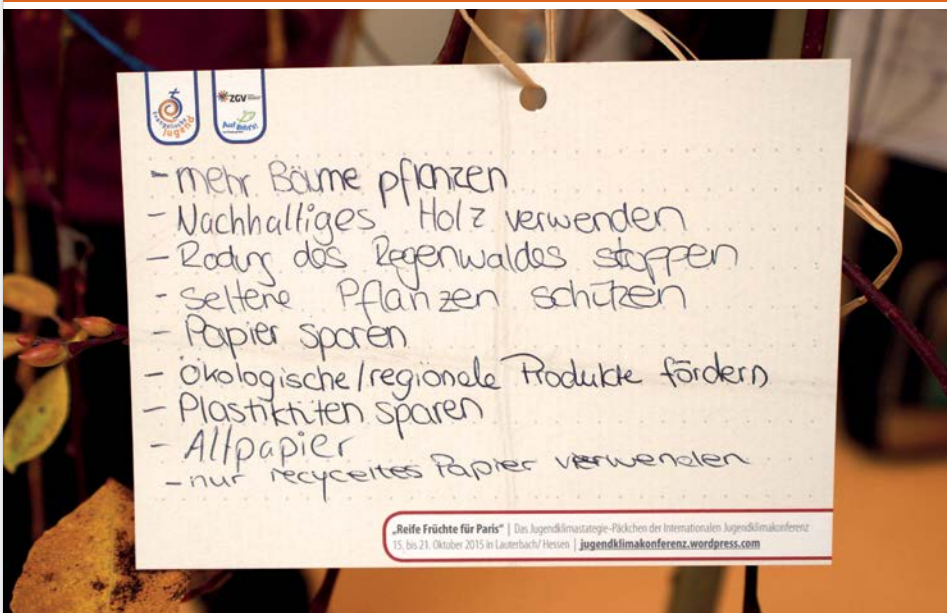 evangelische
jugend
ZGV
- mehr Bäume pflanzen
- Nachhaltiges Holz verwenden
- Rodung des Regenwaldes stoppen
- seltene Pflanzen schützen
- Papier sparen
- ökologische/regionale Produkte fördern
- Plastiktüten sparen
- Altpapier
- nur recyceltes Papier verwenden
„Reife Früchte für Paris“ | Das Jugendklimastategie-Päckchen der Internationalen Jugendklimakonferenz
15. bis 21. Oktober 2015 in Lauterbach/ Hessen | jugendklimakonferenz.wordpress.com